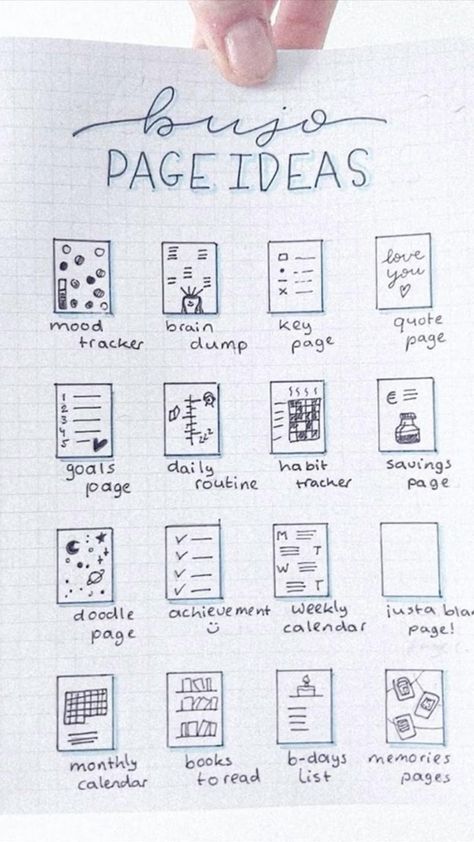 bujo
PAGE IDEAS
mood
tracker
brain
dump
key
page
love
you
quote
page
1
2
3
4
5
goals
page
zzz
daily
routine
habit
tracker
€
savings
page
doodle
page
achievement
M
T
W
T
weekly
calendar
just a bla
page!
monthly
calendar
books
to read
b-days
list
memories
pages